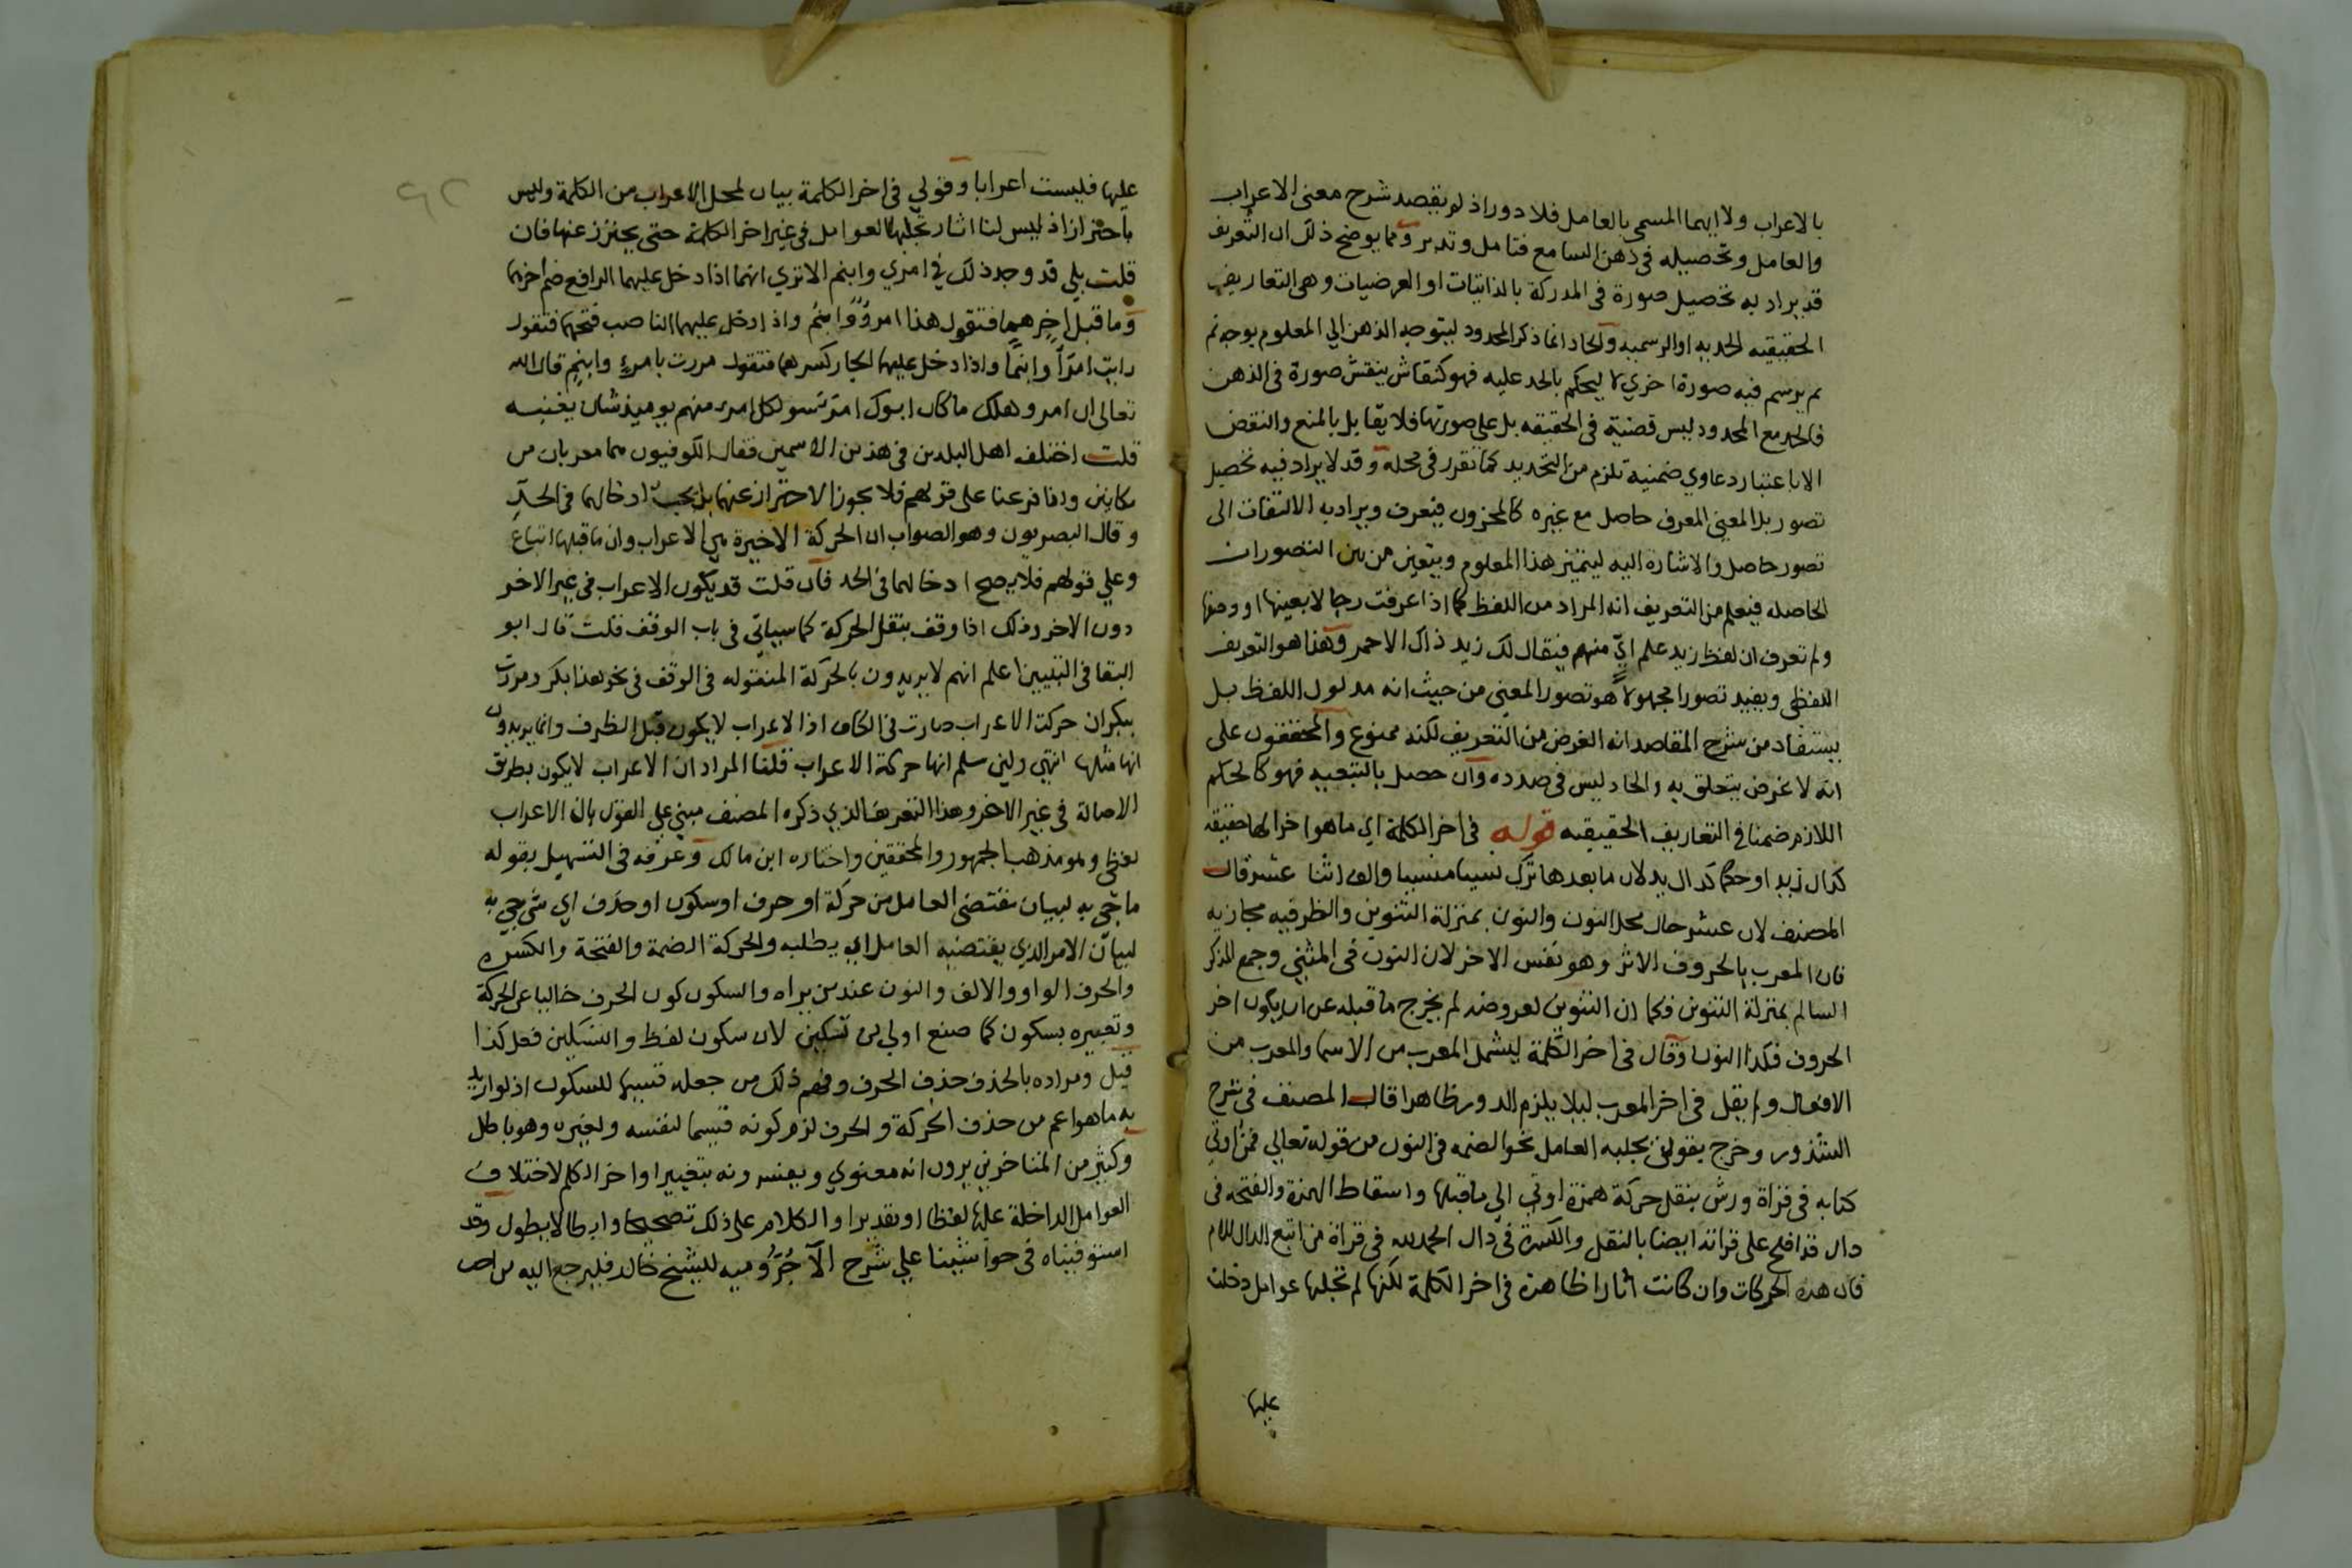 بالاعراب ولا ايهما المسمى بالعامل فلا دور اذ لم يقصد شرح معنى الاعراب
والعامل وتحصيله فى ذهن السامع فتامل وتدبر ومما يوضح ذلك ان التعريف
قد يراد به تحصيل صورة فى المدركة بالذاتيات او العرضيات وهى التعاريف
الحقيقيه الحديه او الرسميه والحاد انما ذكر المحدود ليتوجه الذهن الي المعلوم بوجه ثم
يرسم فيه صورة اخري لا ليحكم بالحد عليه فهو كنقاش ينقش صورة فى الذهن
فالحد مع المحدود ليس قضية فى الحقيقه بل على صورتها فلا يقابل بالمنع والنقض
الا باعتبار دعاوي ضمنية تلزم من التحديد كما تقرر فى محله وقد لا يراد فيه تحصيل
تصور بل المعنى المعرف حاصل مع غيره كالمخزون فيعرف ويراد به الالتفات الى
تصور حاصل والاشاره اليه ليتميز هذا المعلوم ويتعين من بين التصورات
الحاصله فيعلم من التعريف انه المراد من اللفظ كما اذا عرفت رجالا باعينها او وصفا
ولم تعرف ان لفظ زيد علم اىّ منهم فيقال لك زيد ذاك الاحمر وهذا هو التعريف
اللفظى ويفيد تصورا مجهولا هو تصور المعنى من حيث انه مدلول اللفظ بل
يستفاد من شرح المقاصد انه الغرض من التعريف لكنه ممنوع والمحققون على
انه لا غرض يتعلق به والحاد ليس فى صدده وان حصل بالتبعيه فهو كالحكم
اللازم ضمنا فى التعاريف الحقيقيه قوله فى اخر الكلمة اي ما هو اخر لها حقيقه
كدال زيد او حكما كدال يد لان ما بعدها ترك نسيا منسيا والف اثنا عشر قال
المصنف لان عشر حال محل النون والنون بمنزلة التنوين والظرفيه مجازيه
فان المعرب بالحروف الاثر وهو نفس الاخر لان النون فى المثنى وجمع المذكر
السالم بمنزلة التنوين فكما ان التنوين لعروضه لم يخرج ما قبله عن ان يكون اخر
الحروف فكذا النون وقال فى اخر الكلمة ليشمل المعرب من الاسما والمعرب من
الافعال ولم يقل فى اخر المعرب ليلا يلزم الدور ظاهرا قال المصنف فى شرح
الشذور وخرج بقولى يجلبه العامل نحو الضمه فى النون من قوله تعالى فمن اوتي
كتابه فى قراة ورش بنقل حركة همزة اوتى الى ما قبلها واسقاط الهمزة والفتحه فى
دال قد افلح على قراته ايضا بالنقل والكسرة فى دال الحمد لله فى قراة من اتبع الدال اللام
فان هذه الحركات وان كانت اثارا ظاهرة فى اخر الكلمة لكنها لم تجلبها عوامل دخلت
عليها
عليها فليست اعرابا وقولي فى اخر الكلمة بيان لمحل الاعراب من الكلمة وليس
باحتراز اذ ليس لنا اثار تجلبها العوامل فى غير اخر الكلمة حتى يحترز عنها فان
قلت بلي قد وجد ذلك في امري وابنم الا تري انهما اذا دخل عليهما الرافع ضم اخرهما
وما قبل اخرهما فتقول هذا امرؤ وابنم واذا دخل عليهما الناصب فتحهما فتقول
رايت امرًأ وابنمًا واذا دخل عليهما الجار كسرهما فتقول مررت بامرئ وابنم قال الله
تعالى ان امرو هلك ما كان ابوك امرَ سو لكل امرء منهم يوميذ شان يغنيه
قلت اختلف اهل البلدين فى هذين الاسمين فقال الكوفيون هما معربان من
مكانين واذا فرعنا على قولهم فلا يجوز الاحتراز عنهما بل يجب ادخالهما فى الحدّ
وقال البصريون وهو الصواب ان الحركة الاخيرة هي الاعراب وان ما قبلها اتباع
وعلي قولهم فلا يصح ادخالهما فى الحد فان قلت قد يكون الاعراب فى غير الاخر
دون الاخر وذلك اذا وقف بنقل الحركة كما سياتى فى باب الوقف قلت قال ابو
البقا فى التبيين اعلم انهم لا يريدون بالحركة المنقوله فى الوقف فى نحو هذا بكر ومررت
ببكر ان حركة الاعراب صارت فى الكاف اذ الاعراب لا يكون قبل الطرف وانما يريدون
انها مثلها انتهي ولين سلم انها حركة الاعراب قلنا المراد ان الاعراب لا يكون بطريق
الاصالة فى غير الاخر وهذا التعريف الذي ذكره المصنف مبني على القول بان الاعراب
لفظى وهو مذهب الجمهور والمحققين واختاره ابن مالك وعرفه فى التسهيل بقوله
ما جي به لبيان مقتضى العامل من حركة او حرف او سكون او حذف اي شى جي به
لبيان الامر الذي يقتضيه العامل اي يطلبه والحركة الضمة والفتحة والكسره
والحرف الواو والالف والنون عند من يراه والسكون كون الحرف خاليا عن الحركة
وتعبيره بسكون كما صنع اولي من تسكين لان سكون لفظ والتسكين فعل كذا
قيل ومراده بالحذف حذف الحرف وفهم ذلك من جعله قسيما للسكون اذ لو اريد
به ما هو اعم من حذف الحركة والحرف لزم كونه قسيما لنفسه ولغيره وهو باطل
وكثير من المتاخرين يرون انه معنوي ويفسرونه بتغيير اواخر الكلم لاختلاف
العوامل الداخلة عليها لفظا او تقديرا والكلام على ذلك تصحيحا وابطالا يطول وقد
استوفيناه فى حواشينا علي شرح الآجُرُّوميه للشيخ خالد فليرجع اليه من احب